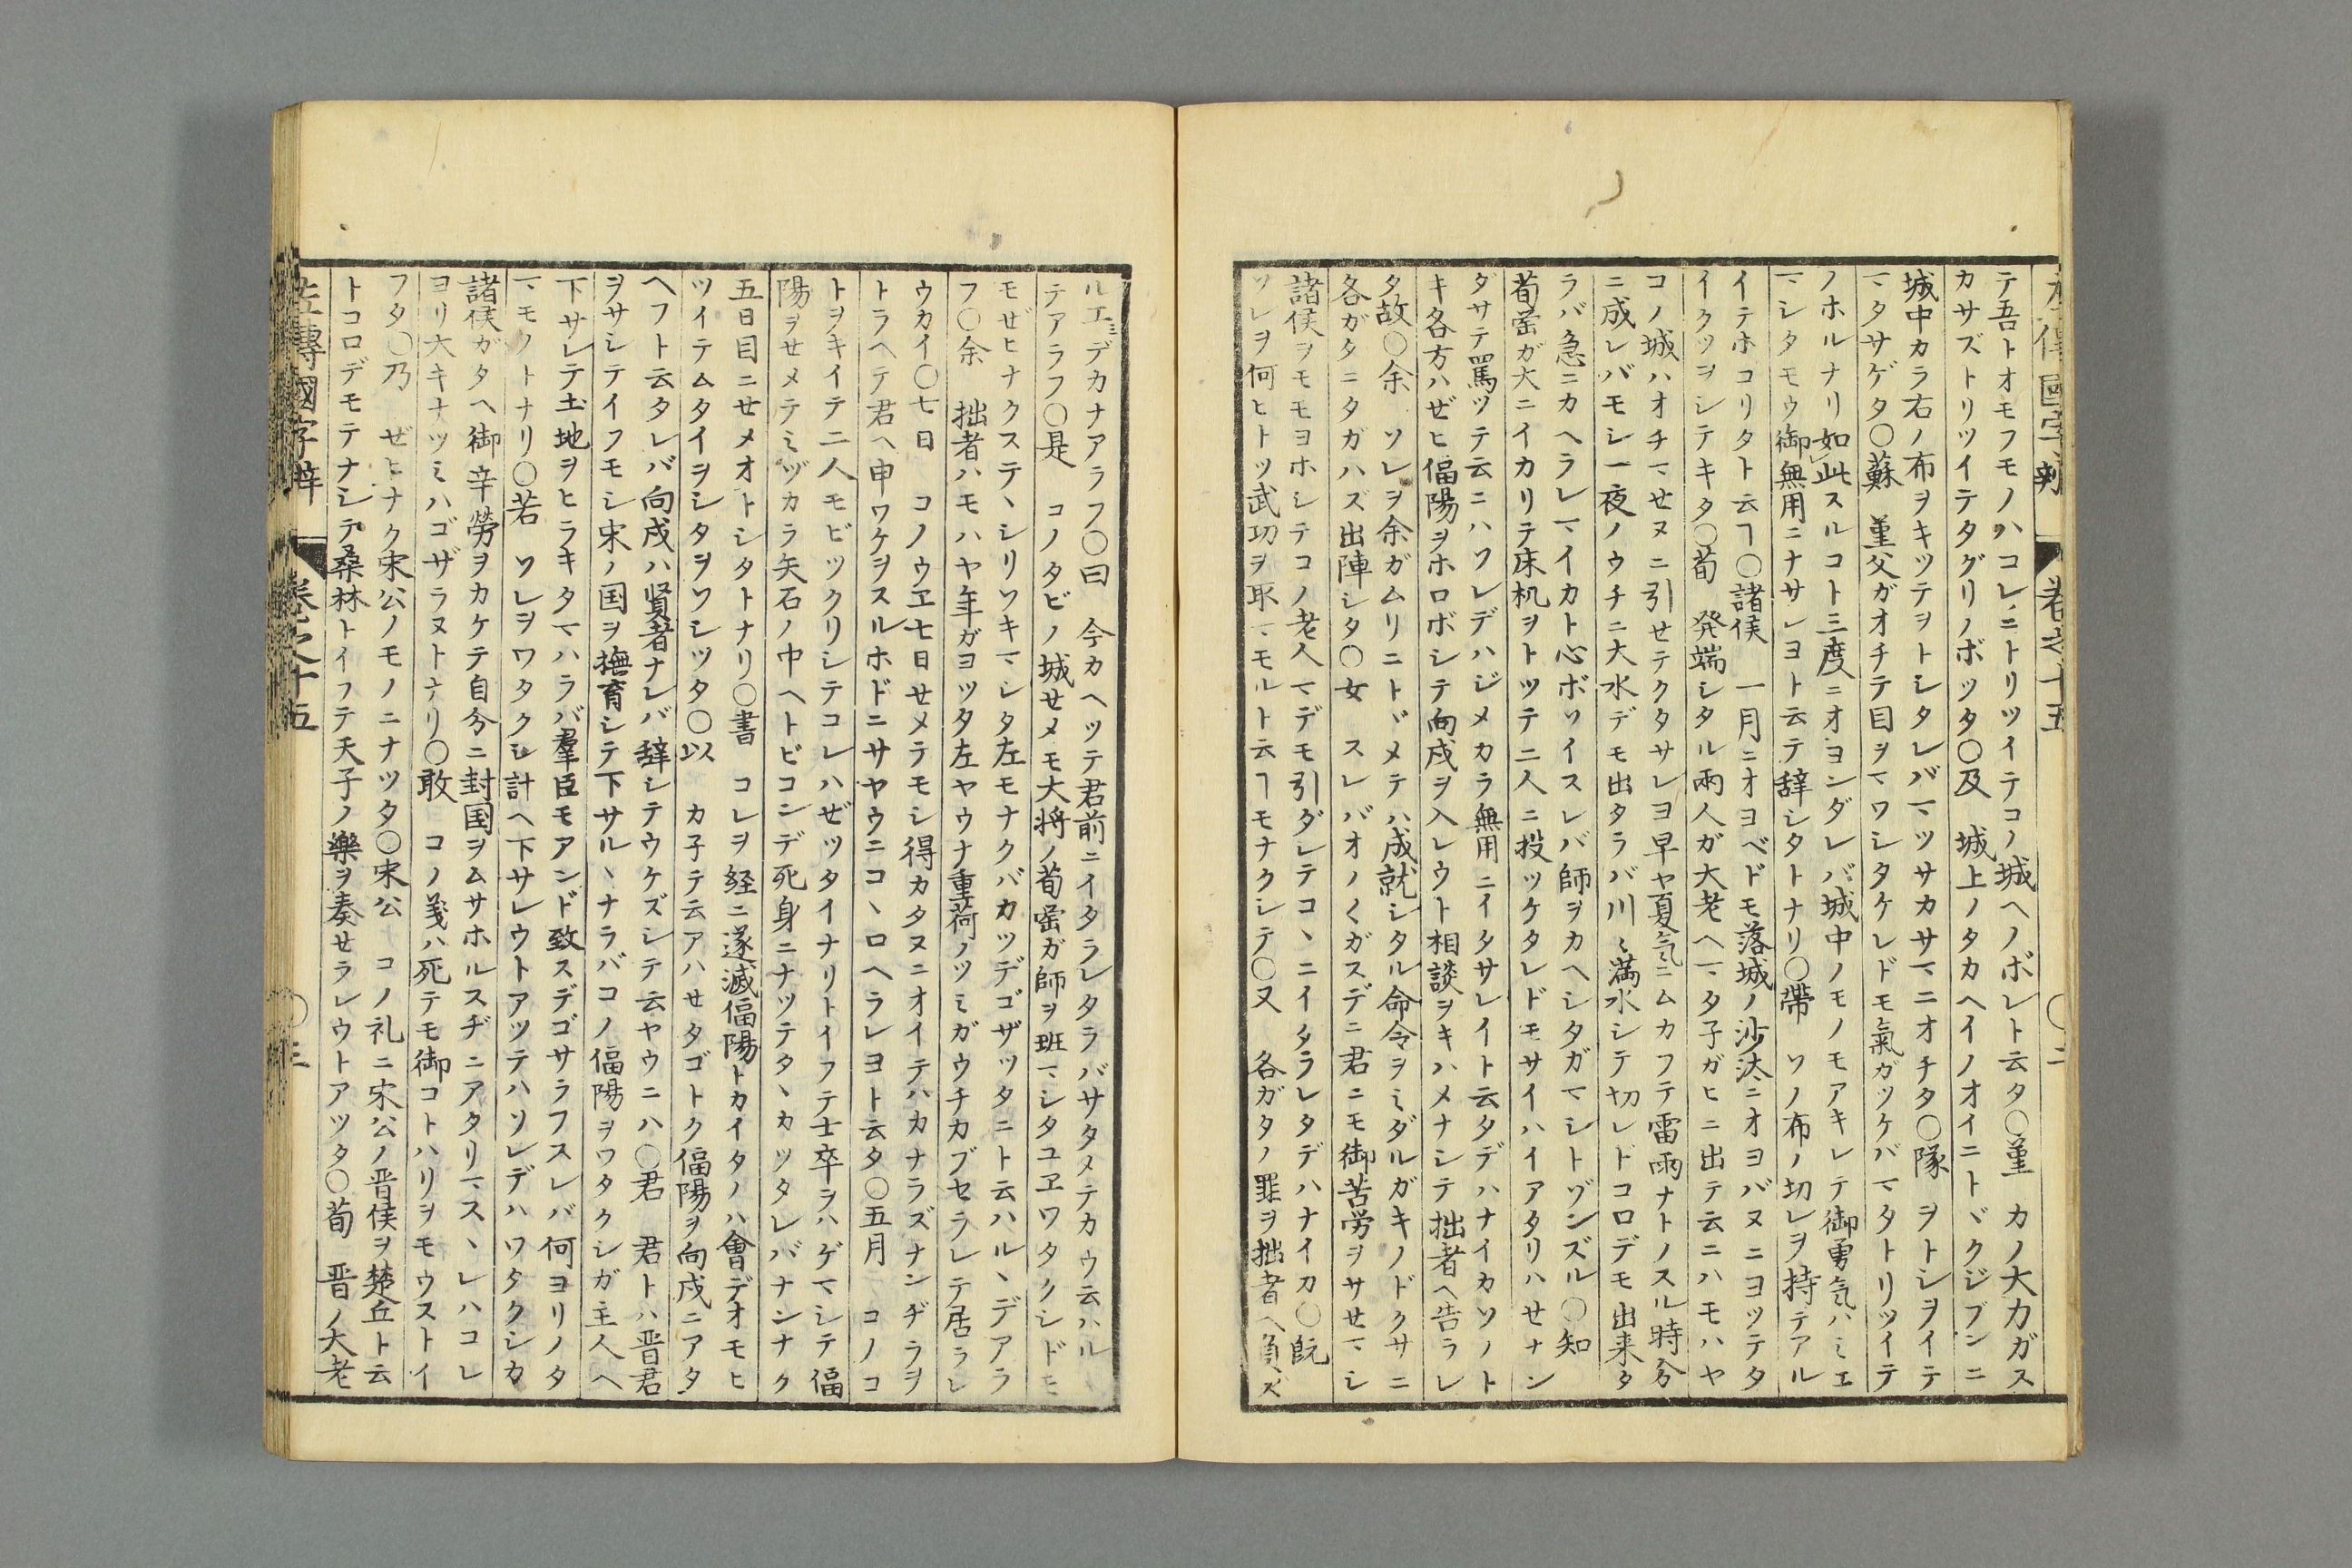 テ吾トオモフモノハコレニトリツイテコノ城ヘノボレト云タ〇堇 カノ大力ガス
カサズトリツイテタグリノボツタ〇及 城上ノタカヘイノオイニトヾクジブンニ
城中カラ右ノ布ヲキツテヲトシタレバマツサカサマニオチタ〇隊 ヲトシヲイテ
マタサゲタ〇蘇 堇父ガオチテ目ヲマワシタケレドモ氣ガツケバマタトリツイテ
ノホルナリ如此スルコト三度ニオヨンダレバ城中ノモノモアキレテ御勇気ハミエ
マシタモウ御無用ニナサレヨト云テ辞シタトナリ〇帶 ソノ布ノ切レヲ持テアル
イテホコリタト云ヿ〇諸侯 一月ニオヨベドモ落城ノ沙汰ニオヨバヌニヨツテタ
イクツヲシテキタ〇荀 発端シタル兩人ガ大老ヘマタ子ガヒニ出テ云ニハモハヤ
コノ城ハオチマせヌニ引せテクタサレヨ早ヤ夏気ニムカフテ雷雨ナトノスル時分
ニ成レバモシ一夜ノウチニ大水デモ出タラバ川〻満水シテ切レドコロデモ出来タ
ラバ急ニカヘラレマイカト心ボソイスレバ師ヲカヘシタガマシトゾンズル〇知
荀罃ガ大ニイカリテ床机ヲトツテ二人ニ投ツケタレドモサイハイアタリハせナン
ダサテ罵ツテ云ニハソレデハジメカラ無用ニイタサレイト云タデハナイカソノト
キ各方ハぜヒ偪陽ヲホロボシテ向戌ヲ入レウト相談ヲキハメナシテ拙者ヘ告ラレ
タ故〇余 ソレヲ余ガムリニトヾメテハ成就シタル命令ヲミダルガキノドクサニ
各ガタニタガハズ出陣シタ〇女 スレバオノ〱ガスデニ君ニモ御苦労ヲサせマシ
諸侯ヲモモヨホシテコノ老人マデモ引ダレテコヽニイタラレタデハナイカ〇既
ソレヲ何ヒトツ武功ヲ取マモルト云ヿモナクシテ〇又 各ガタノ罪ヲ拙者ヘ負ズ
ルエミデカナアラフ〇曰 今カヘツテ君前ニイタラレタラバサタメテカウ云ハル
テアラフ〇是 コノタビノ城せメモ大将ノ荀罃ガ師ヲ班マシタユヱワタクシドモ
モぜヒナクステヽシリソキマシタ左モナクバカツデゴザツタニト云ハルヽデアラ
フ〇余 拙者ハモハヤ年ガヨツタ左ヤウナ重荷ノツミガウチカブセラレテ居ラレ
ウカイ〇七日 コノウヱ七日せメテモシ得カタヌニオイテハカナラズナンヂラヲ
トラヘテ君ヘ申ワケヲスルホドニサヤウニコヽロヘラレヨト云タ〇五月 コノコ
トヲキイテ二人モビツクリシテコレハぜツタイナリトイフテ士卒ヲハゲマシテ偪
陽ヲせメテミヅカラ矢石ノ中ヘトビコンデ死身ニナツテタヽカツタレバナンナク
五日目ニせメオトシタトナリ〇書 コレヲ経ニ遂滅偪陽トカイタノハ會デオモヒ
ツイテムタイヲシタヲソシツタ〇以 カ子テ云アハせタゴトク偪陽ヲ向戌ニアタ
ヘフト云タレバ向戌ハ賢者ナレバ辞シテウケズシテ云ヤウニハ〇君 君トハ晋君
ヲサシテイフモシ宋ノ国ヲ撫育シテ下サルヽナラバコノ偪陽ヲワタクシガ主人ヘ
下サレテ土地ヲヒラキタマハラバ羣臣モアンド致スデゴサラフスレバ何ヨリノタ
マモノトナリ〇若 ソレヲワタクシ計ヘ下サレウトアツテハソレデハワタクシカ
諸侯ガタヘ御辛勞ヲカケテ自分ニ封国ヲムサホルスヂニアタリマスヽレハコレ
ヨリ大キナツミハゴザラヌトナリ〇敢 コノ義ハ死テモ御コトハリヲモウストイ
フタ〇乃 ぜヒナク宋公ノモノニナツタ〇宋公 コノ礼ニ宋公ノ晋侯ヲ楚丘ト云
トコロデモテナシテ桑林トイフテ天子ノ樂ヲ奏せラレウトアツタ〇荀 晋ノ大老
左傳國字辯 巻之十五 〇三